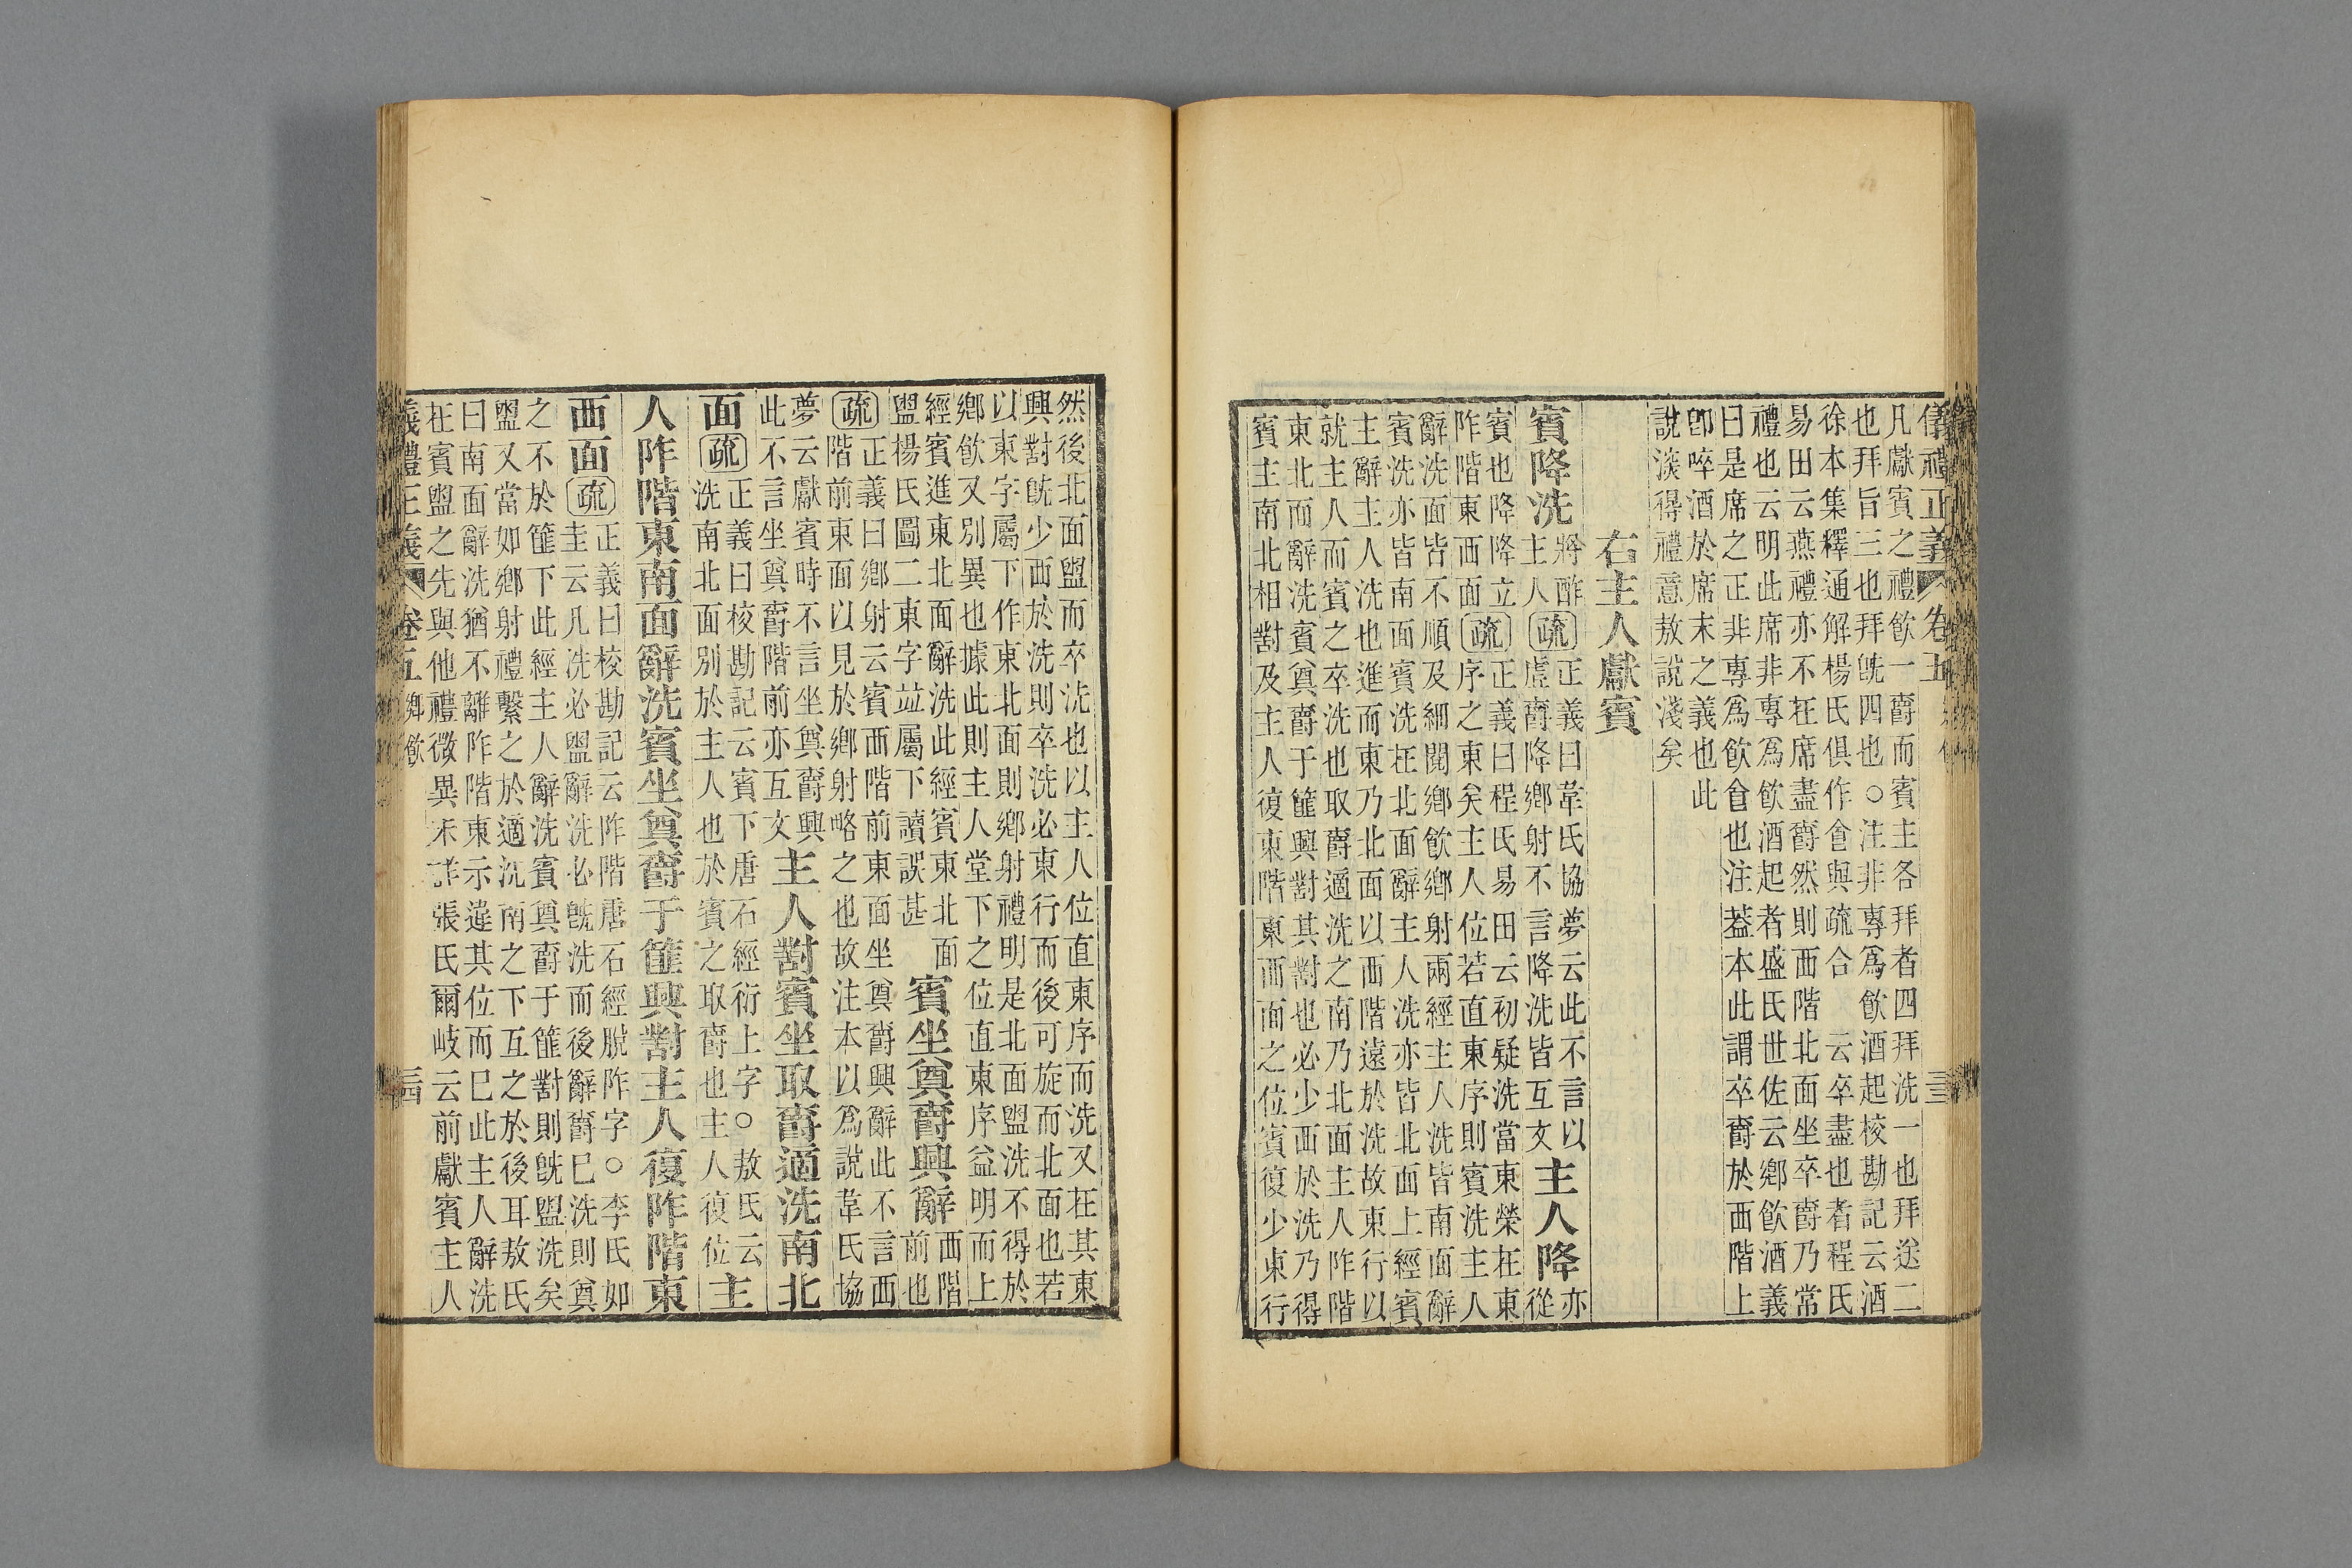 儀禮正義 卷五
凡獻賓之禮飮一爵而賓主各拜者四拜洗一也拜送二
也拜旨三也拜旣四也○注非專爲飮酒起校勘記云酒
徐本集釋通解楊氏俱作㑹與疏合 云卒盡也者程氏
易田云燕禮亦不在席盡爵然則西階北面坐卒爵乃常
禮也云明此席非專爲飮酒起者盛氏世佐云鄉飮酒義
曰是席之正非專爲飮㑹也注葢本此謂卒爵於西階上
卽啐酒於席末之義也此
說淡得禮意敖說淺矣
右主人獻賓
賓降洗將酢主人疏正義曰韋氏協夢云此不言以虛爵降鄉射不言降洗皆互文主人降亦從
賓也降降立阼階東西面疏正義曰程氏易田云初疑洗當東榮在東序之東矣主人位若直東序則賓洗主人
辭洗面皆不順及細閱鄉飮鄉射兩經主人洗皆南面辭
賓洗亦皆南面賓洗在北面辭主人洗亦皆北面上經賓
主辭主人洗也進而東乃北面以西階遠於洗故東行以
就主人而賓之卒洗也取爵適洗之南乃北面主人阼階
東北面辭洗賓奠爵于篚興對其對也必少西於洗乃得
賓主南北相對及主人復東階東西面之位賓復少東行
然後北面盥而卒洗也以主人位直東序而洗又在其東
興對旣少西於洗則卒洗必東行而後可旋而北面也若
以東字屬下作東北面則鄉射禮明是北面盥洗不得於
鄉飮又別異也據此則主人堂下之位直東序益明而上
經賓進東北面辭洗此經賓東北面
盥楊氏圖二東字並屬下讀誤甚
賓坐奠爵興辭西階前也
疏正義曰鄉射云賓西階前東面坐奠爵興辭此不言西階前東面以見於鄉射略之也故注本以爲說韋氏協
夢云獻賓時不言坐奠爵興
此不言坐奠爵階前亦互文
主人對賓坐取爵適洗南北
面疏正義曰校勘記云賓下唐石經衍上字○敖氏云洗南北面別於主人也於賓之取爵也主人復位主
人阼階東南面辭洗賓坐奠爵于篚興對主人復阼階東
西面疏正義曰校勘記云阼階唐石經脫阼字○李氏如圭云凡洗必盥辭洗必旣洗而後辭爵巳洗則奠
之不於篚下此經主人辭洗賓奠爵于篚對則旣盥洗矣
盥又當如鄉射禮繫之於適洗南之下互之於後耳敖氏
曰南面辭洗猶不離阼階東示違其位而巳此主人辭洗
在賓盥之先與他禮微異未詳張氏爾岐云前獻賓主人
義禮正義 卷五 鄉飮